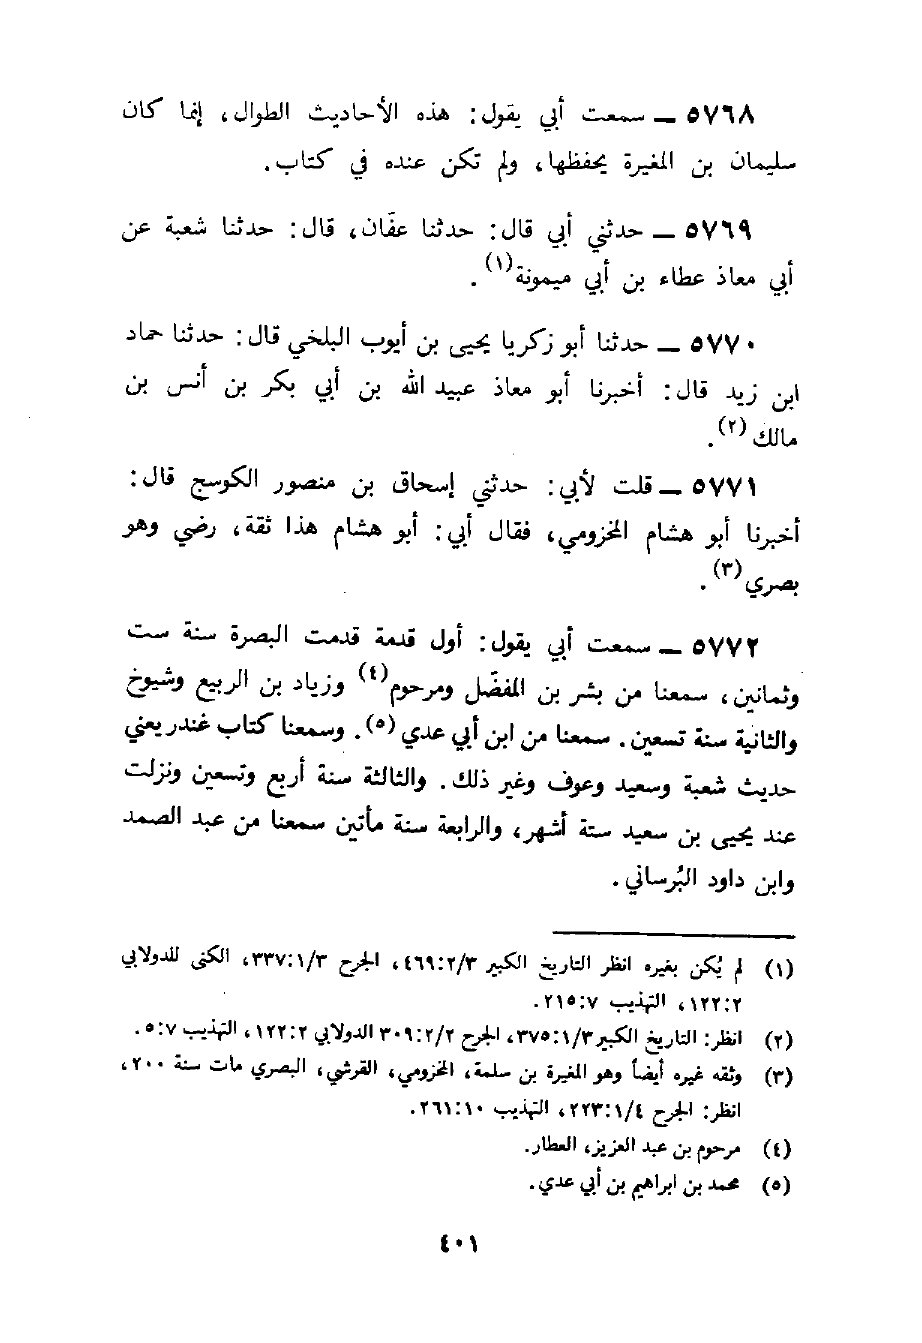 ٥٧٦٨ ــ سمعت أبي يقول: هذه الأحاديث الطوال، إنما كان
سليمان بن المغيرة يحفظها، ولم تكن عنده في كتاب.
٥٧٦٩ ــ حدثني أبي قال: حدثنا عفّان، قال: حدثنا شعبة عن
أبي معاذ عطاء بن أبي ميمونة(١).
٥٧٧٠ ــ حدثنا أبو زكريا يحيى بن أيوب البلخي قال: حدثنا حماد
ابن زيد قال: أخبرنا أبو معاذ عبيد الله بن أبي بكر بن أنس بن
مالك(٢).
٥٧٧١ ــ قلت لأبي: حدثني إسحاق بن منصور الكوسج قال:
أخبرنا أبو هشام المخزومي، فقال أبي: أبو هشام هذا ثقة، رضي وهو
بصري(٣).
٥٧٧٢ ــ سمعت أبي يقول: أول قدمة قدمت البصرة سنة ست
وثمانين، سمعنا من بشر بن المفضّل ومرحوم(٤) وزياد بن الربيع وشيوخ
والثانية سنة تسعين. سمعنا من ابن أبي عدي(٥). وسمعنا كتاب غندر يعني
حديث شعبة وسعيد وعوف وغير ذلك. والثالثة سنة أربع وتسعين ونزلت
عند يحيى بن سعيد ستة أشهر، والرابعة سنة مأتين سمعنا من عبد الصمد
وابن داود البُرساني.
(١) لم يُكن بغيره انظر التاريخ الكبير ٤٦٩:٢/٣، الجرح ٣٣٧:١/٣، الكنى للدولابي
١٢٢:٢، التهذيب ٢١٥:٧.
(٢) انظر: التاريخ الكبير ٣٧٥:١/٣، الجرح ٣٠٩:٢/٢ الدولابي ١٢٢:٢، التهذيب ٥:٧.
(٣) وثقه غيره أيضاً وهو المغيرة بن سلمة، المخزومي، القرشي، البصري مات سنة ٢٠٠،
انظر: الجرح ٢٢٣:١/٤، التهذيب ٢٦١:١٠.
(٤) مرحوم بن عبد العزيز، العطار.
(٥) محمد بن ابراهيم بن أبي عدي.
٤٠١